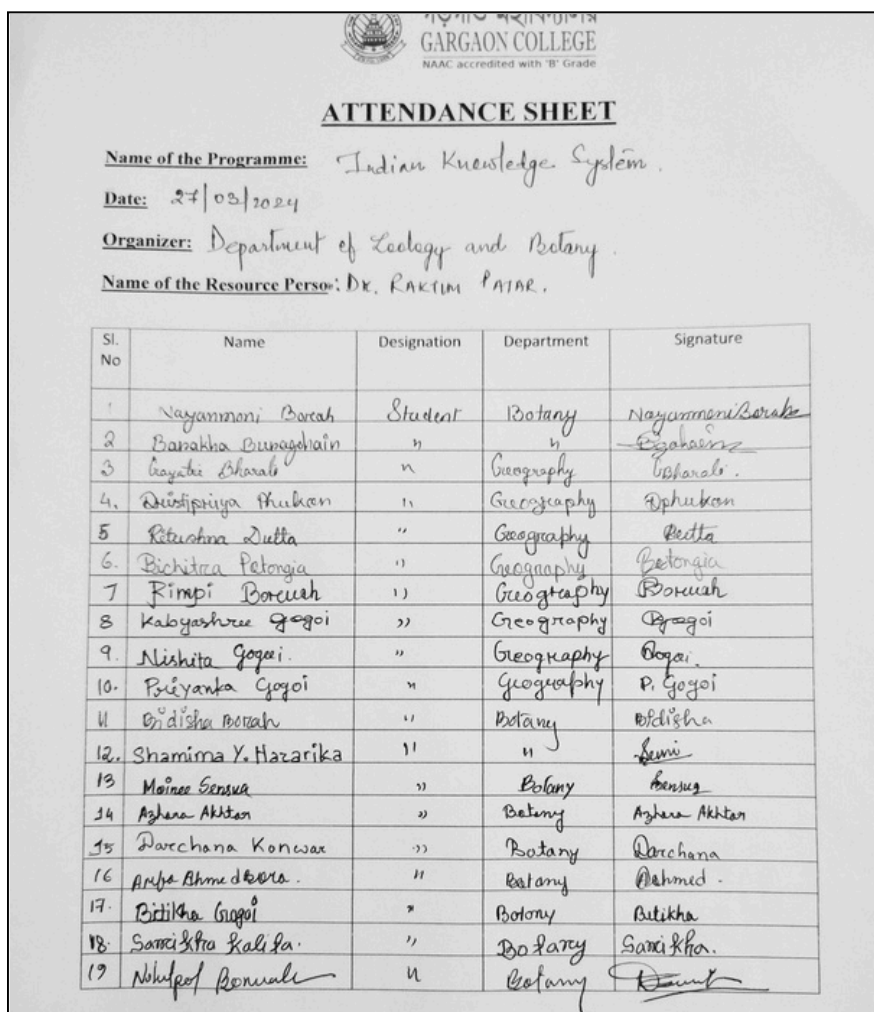 GARGAON COLLEGE
NAAC accredited with 'B' Grade
ATTENDANCE SHEET
Name of the Programme: Indian Knowledge System.
Date: 27/03/2024
Organizer: Department of Zoology and Botany.
Name of the Resource Person: DR. RAKTIM PATAR.
Sl. No Name Designation Department Signature
1 Nayanmoni Borah Student Botany Nayanmoni Borah
2 Banakha Buragohain " "
3 Gayatri Bharali " Geography GBharali.
4. Dristipriya Phukan " Geography Dphukan
5 Ritushna Dutta " Geography
6. Bichitra Patongia " Geography
7 Rimpi Boruah " Geography Boruah
8 Kabyashree Gogoi " Geography
9. Nishita Gogoi. " Geography Gogoi.
10. Priyanka Gogoi " Geography P. Gogoi
11 Bidisha Borah " Botany Bidisha
12. Shamima Y. Hazarika " "
13 Moinee Sensua " Botany Sensua
14 Azhera Akhtar " Botany Azhera Akhtar
15 Darchana Konwar " Botany Darchana
16 Ahmed Bora. " Botany Ahmed.
17. Bitikha Gogoi " Botany Bitikha
18. Samikha Kalita. " Botany Samikha.
19 " Botany